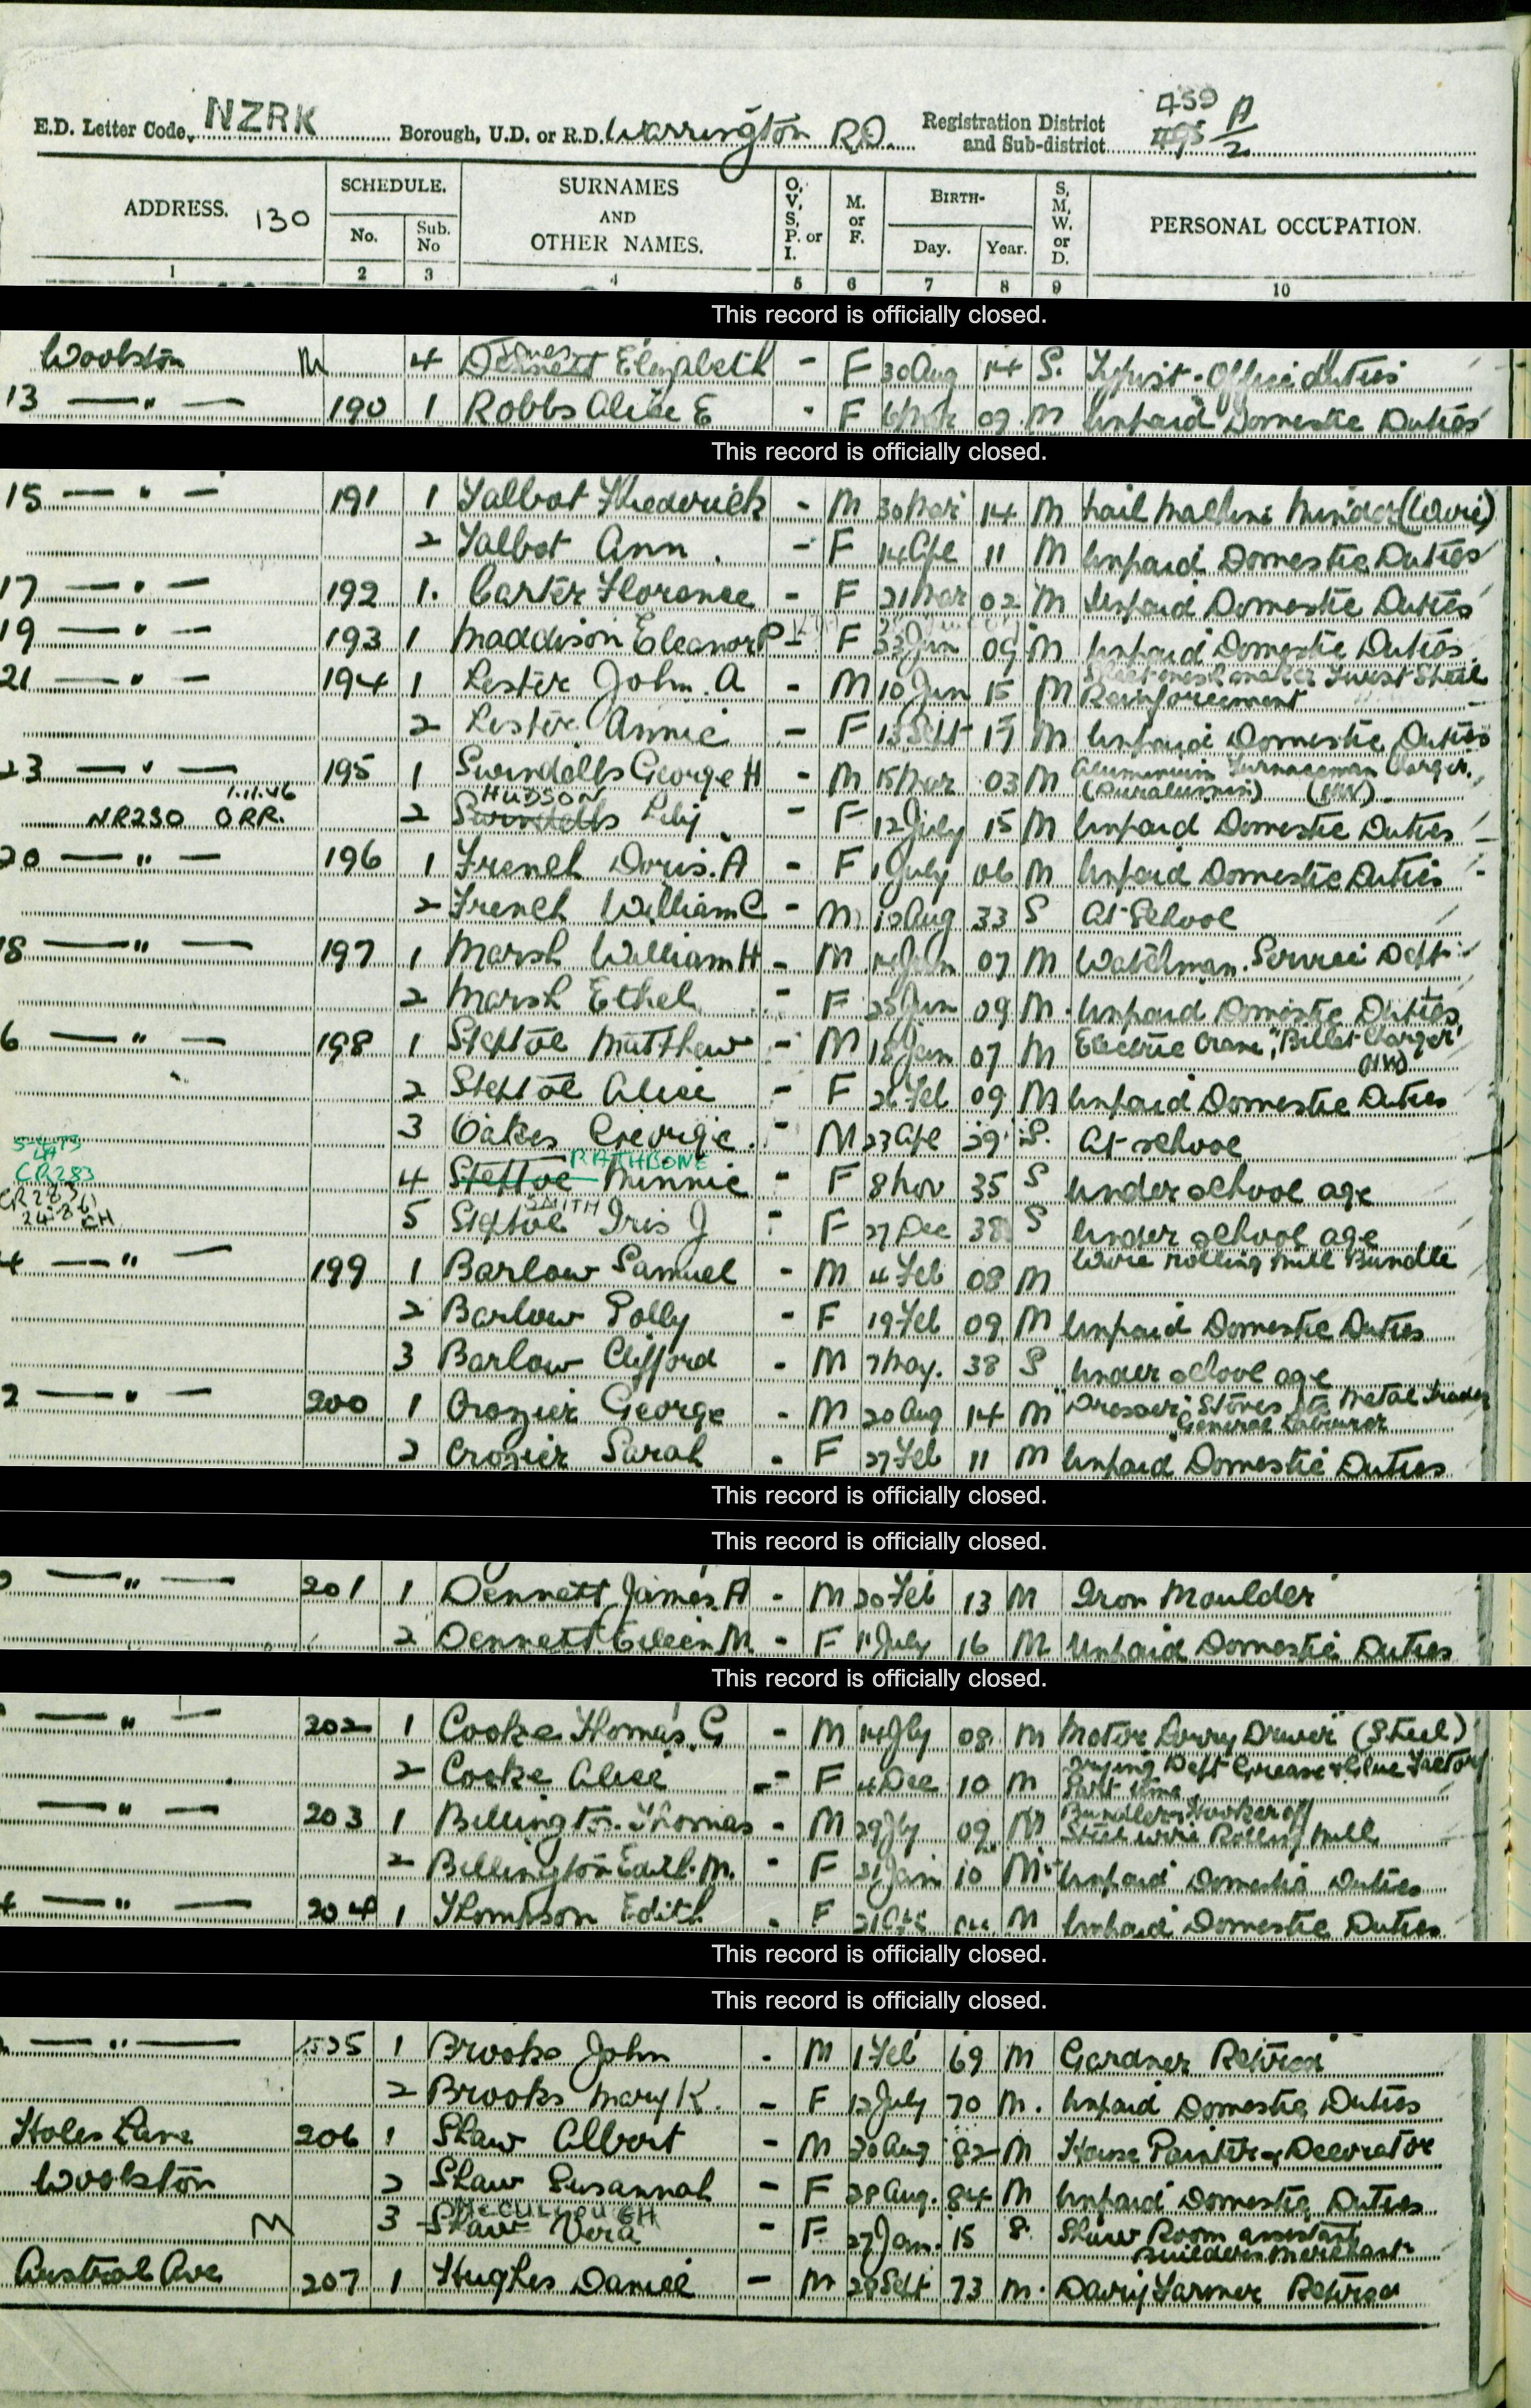 E.D. Letter Code NZRK Borough, U.D. or R.D. Warrington R.D. Registration District and Sub-district 459 A/2
ADDRESS. 130 SCHEDULE. No. Sub. No SURNAMES AND OTHER NAMES. O, V, S, P. or I. M. or F. BIRTH- Day. Year. S, M, W. or D. PERSONAL OCCUPATION.
1 2 3 4 5 6 7 8 9 10
This record is officially closed.
Woolston M 4 Jones Dennett Elizabeth - F 30 Aug 14 S. Typist - Office duties
13 — " — 190 1 Robbs Alice E - F 6 Mar 09 M Unpaid Domestic Duties
This record is officially closed.
15 — " — 191 1 Talbot Frederick - M 30 Mar 14 M Nail Machine Minder (Wire)
2 Talbot Ann. - F 14 Apl 11 M Unpaid Domestic Duties
17 — " — 192 1. Carter Florence - F 21 Mar 02 M Unpaid Domestic Duties
19 — " — 193 1 Maddison Eleanor P - F 23 Jun 09 M Unpaid Domestic Duties
21 — " — 194 1 Lester John. A - M 10 Jun 15 M Sheet mesh maker Twist Steel Reinforcement
2 Lester Annie - F 13 Sept 17 M Unpaid Domestic Duties
23 — " — 195 1 Swindells George H - M 15 Mar 03 M Aluminium Furnaceman Charger. (Duralumin) (HW)
NR230 ORR. 1.11.46 2 HUDSON Swindells Lily - F 12 July 15 M Unpaid Domestic Duties
20 — " — 196 1 French Doris. A - F 1 July 06 M Unpaid Domestic Duties
2 French William C - M 10 Aug 33 S At School
18 — " — 197 1 Marsh William H - M Jan 07 M Watchman. Service Dept.
2 Marsh Ethel - F 25 Jun 09 M. Unpaid Domestic Duties
6 — " — 198 1 Steptoe Matthew - M 18 Jan 07 M Electric Crane, "Billet Charger" (HW)
2 Steptoe Alice - F 26 Feb 09 M Unpaid Domestic Duties
3 Oakes George. - M 23 Apl 29 S. At school
CR283 4 RATHBONE Steptoe Minnie - F 8 Nov 35 S Under school age
CR283 24.8.61 CH 5 SMITH Steptoe Iris J - F 27 Dec 38 S Under school age
4 — " — 199 1 Barlow Samuel - M 4 Feb 08 M Wire rolling mill Bundle
2 Barlow Polly - F 19 Feb 09 M Unpaid Domestic Duties
3 Barlow Clifford - M 7 May. 38 S Under school age
2 — " — 200 1 Crozier George - M 20 Aug 14 M Dresser Stoves etc Metal Trades General Labourer
2 Crozier Sarah - F 27 Feb 11 M Unpaid Domestic Duties
This record is officially closed.
This record is officially closed.
— " — 201 1 Dennett James. A - M 20 Feb 13 M Iron Moulder
2 Dennett Eileen M. - F 11 July 16 M Unpaid Domestic Duties
This record is officially closed.
— " — 202 1 Cooke Thomas. G - M 14 Jly 08 M Motor Lorry Driver (Steel)
2 Cooke Alice - F 4 Dec 10 M Drying Dept Grease & Glue Factory Part time
— " — 203 1 Billington Thomas - M 29 Jly 09 M Bundler & Hooker off Steel wire Rolling Mill
2 Billington Edith. M. - F 21 Jan 10 M Unpaid Domestic Duties
4 — " — 204 1 Thompson Edith - F 21 Oct 04 M Unpaid Domestic Duties
This record is officially closed.
This record is officially closed.
— " — 205 1 Brooks John - M 1 Feb 69 M Gardner Retired
2 Brooks Mary K. - F 12 July 70 M. Unpaid Domestic Duties
Holes Lane 206 1 Shaw Albert - M 20 Aug 82 M House Painter & Decorator
Woolston 2 Shaw Susannah - F 28 Aug. 84 M Unpaid Domestic Duties
M 3 McCULLOUGH Shaw Vera - F 27 Jan. 15 S. Show Room assistant Builders Merchant
Austral Ave 207 1 Hughes Daniel - M 28 Sept 73 M. Dairy Farmer Retired